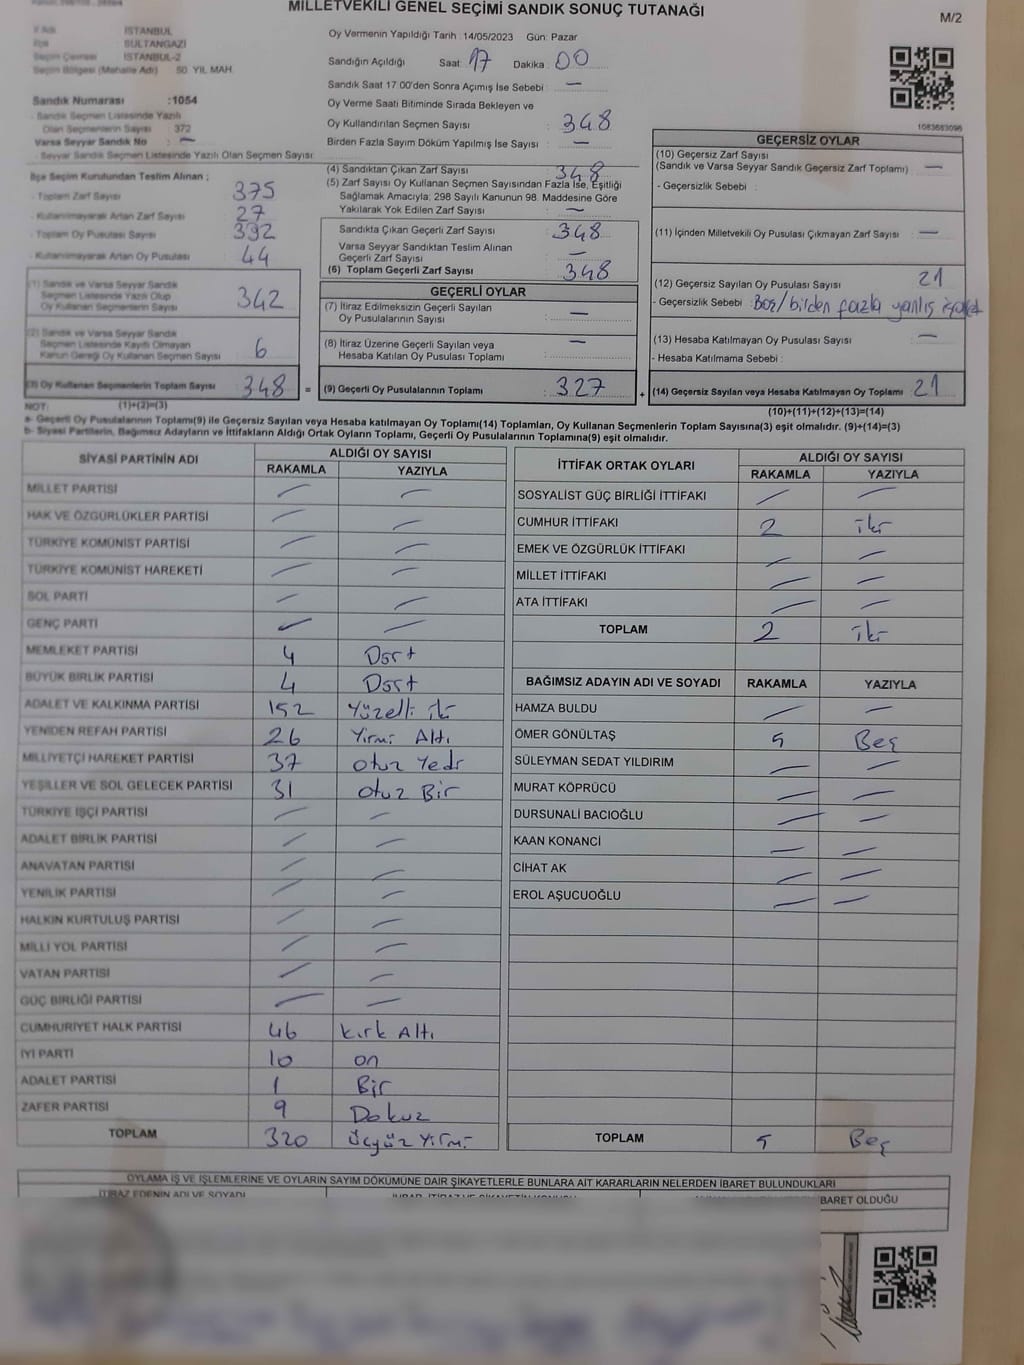 MİLLETVEKİLİ GENEL SEÇİMİ SANDIK SONUÇ TUTANAĞI
M/2
İl Adı : İSTANBUL
İlçe : SULTANGAZİ
Seçim Çevresi : İSTANBUL-2
Seçim Bölgesi (Mahalle Adı) 50. YIL MAH.
Oy Vermenin Yapıldığı Tarih : 14/05/2023 Gün: Pazar
Sandığın Açıldığı Saat: 17 Dakika: 00
Sandık Saat 17.00'den Sonra Açımış İse Sebebi : —
Oy Verme Saati Bitiminde Sırada Bekleyen ve
Oy Kullandırılan Seçmen Sayısı : 348
Birden Fazla Sayım Döküm Yapılmış İse Sayısı : —
Sandık Numarası :1054
- Sandık Seçmen Listesinde Yazılı
Olan Seçmenlerin Sayısı 372
Varsa Seyyar Sandık No : —
- Seyyar Sandık Seçmen Listesinde Yazılı Olan Seçmen Sayısı:
1083683096
İlçe Seçim Kurulundan Teslim Alınan ;
- Toplam Zarf Sayısı : 375
- Kullanılmayarak Artan Zarf Sayısı : 27
- Toplam Oy Pusulası Sayısı : 392
- Kullanılmayarak Artan Oy Pusulası : 44
(1) Sandık ve Varsa Seyyar Sandık
Seçmen Listesinde Yazılı Olup
Oy Kullanan Seçmenlerin Sayısı : 342
(2) Sandık ve Varsa Seyyar Sandık
Seçmen Listesinde Kayıtlı Olmayan
Kanun Gereği Oy Kullanan Seçmen Sayısı : 6
(3) Oy Kullanan Seçmenlerin Toplam Sayısı : 348 =
(4) Sandıktan Çıkan Zarf Sayısı : 348
(5) Zarf Sayısı Oy Kullanan Seçmen Sayısından Fazla İse, Eşitliği
Sağlamak Amacıyla; 298 Sayılı Kanunun 98. Maddesine Göre
Yakılarak Yok Edilen Zarf Sayısı : —
Sandıkta Çıkan Geçerli Zarf Sayısı : 348
Varsa Seyyar Sandıktan Teslim Alınan
Geçerli Zarf Sayısı : —
(6) Toplam Geçerli Zarf Sayısı : 348
GEÇERLİ OYLAR
(7) İtiraz Edilmeksizin Geçerli Sayılan
Oy Pusulalarının Sayısı : —
(8) İtiraz Üzerine Geçerli Sayılan veya
Hesaba Katılan Oy Pusulası Toplamı : —
(9) Geçerli Oy Pusulalarının Toplamı : 327 +
GEÇERSİZ OYLAR
(10) Geçersiz Zarf Sayısı
(Sandık ve Varsa Seyyar Sandık Geçersiz Zarf Toplamı) : —
- Geçersizlik Sebebi :
(11) İçinden Milletvekili Oy Pusulası Çıkmayan Zarf Sayısı : —
(12) Geçersiz Sayılan Oy Pusulası Sayısı : 21
- Geçersizlik Sebebi : Boş/birden fazla yanlış işaret
(13) Hesaba Katılmayan Oy Pusulası Sayısı : —
- Hesaba Katılmama Sebebi :
(14) Geçersiz Sayılan veya Hesaba Katılmayan Oy Toplamı : 21
NOT: (1)+(2)=(3)
(10)+(11)+(12)+(13)=(14)
a- Geçerli Oy Pusulalarının Toplamı(9) ile Geçersiz Sayılan veya Hesaba katılmayan Oy Toplamı(14) Toplamları, Oy Kullanan Seçmenlerin Toplam Sayısına(3) eşit olmalıdır. (9)+(14)=(3)
b- Siyasi Partilerin, Bağımsız Adayların ve İttifakların Aldığı Ortak Oyların Toplamı, Geçerli Oy Pusulalarının Toplamına(9) eşit olmalıdır.
SİYASİ PARTİNİN ADI ALDIĞI OY SAYISI
RAKAMLA YAZIYLA
MİLLET PARTİSİ — —
HAK VE ÖZGÜRLÜKLER PARTİSİ — —
TÜRKİYE KOMÜNİST PARTİSİ — —
TÜRKİYE KOMÜNİST HAREKETİ — —
SOL PARTİ — —
GENÇ PARTİ — —
MEMLEKET PARTİSİ 4 Dört
BÜYÜK BİRLİK PARTİSİ 4 Dört
ADALET VE KALKINMA PARTİSİ 152 Yüzelli iki
YENİDEN REFAH PARTİSİ 26 Yirmi Altı
MİLLİYETÇİ HAREKET PARTİSİ 37 otuz Yedi
YEŞİLLER VE SOL GELECEK PARTİSİ 31 otuz Bir
TÜRKİYE İŞÇİ PARTİSİ — —
ADALET BİRLİK PARTİSİ — —
ANAVATAN PARTİSİ — —
YENİLİK PARTİSİ — —
HALKIN KURTULUŞ PARTİSİ — —
MİLLİ YOL PARTİSİ — —
VATAN PARTİSİ — —
GÜÇ BİRLİĞİ PARTİSİ — —
CUMHURİYET HALK PARTİSİ 46 Kırk Altı
İYİ PARTİ 10 on
ADALET PARTİSİ 1 Bir
ZAFER PARTİSİ 9 Dokuz
TOPLAM 320 Üçyüz Yirmi
İTTİFAK ORTAK OYLARI ALDIĞI OY SAYISI
RAKAMLA YAZIYLA
SOSYALİST GÜÇ BİRLİĞİ İTTİFAKI — —
CUMHUR İTTİFAKI 2 iki
EMEK VE ÖZGÜRLÜK İTTİFAKI — —
MİLLET İTTİFAKI — —
ATA İTTİFAKI — —
TOPLAM 2 iki
BAĞIMSIZ ADAYIN ADI VE SOYADI RAKAMLA YAZIYLA
HAMZA BULDU — —
ÖMER GÖNÜLTAŞ 5 Beş
SÜLEYMAN SEDAT YILDIRIM — —
MURAT KÖPRÜCÜ — —
DURSUNALİ BACIOĞLU — —
KAAN KONANCİ — —
CİHAT AK — —
EROL AŞUCUOĞLU — —
TOPLAM 5 Beş
OYLAMA İŞ VE İŞLEMLERİNE VE OYLARIN SAYIM DÖKÜMÜNE DAİR ŞİKAYETLERLE BUNLARA AİT KARARLARIN NELERDEN İBARET BULUNDUKLARI
İTİRAZ EDENİN ADI VE SOYADI
BARET OLDUĞU